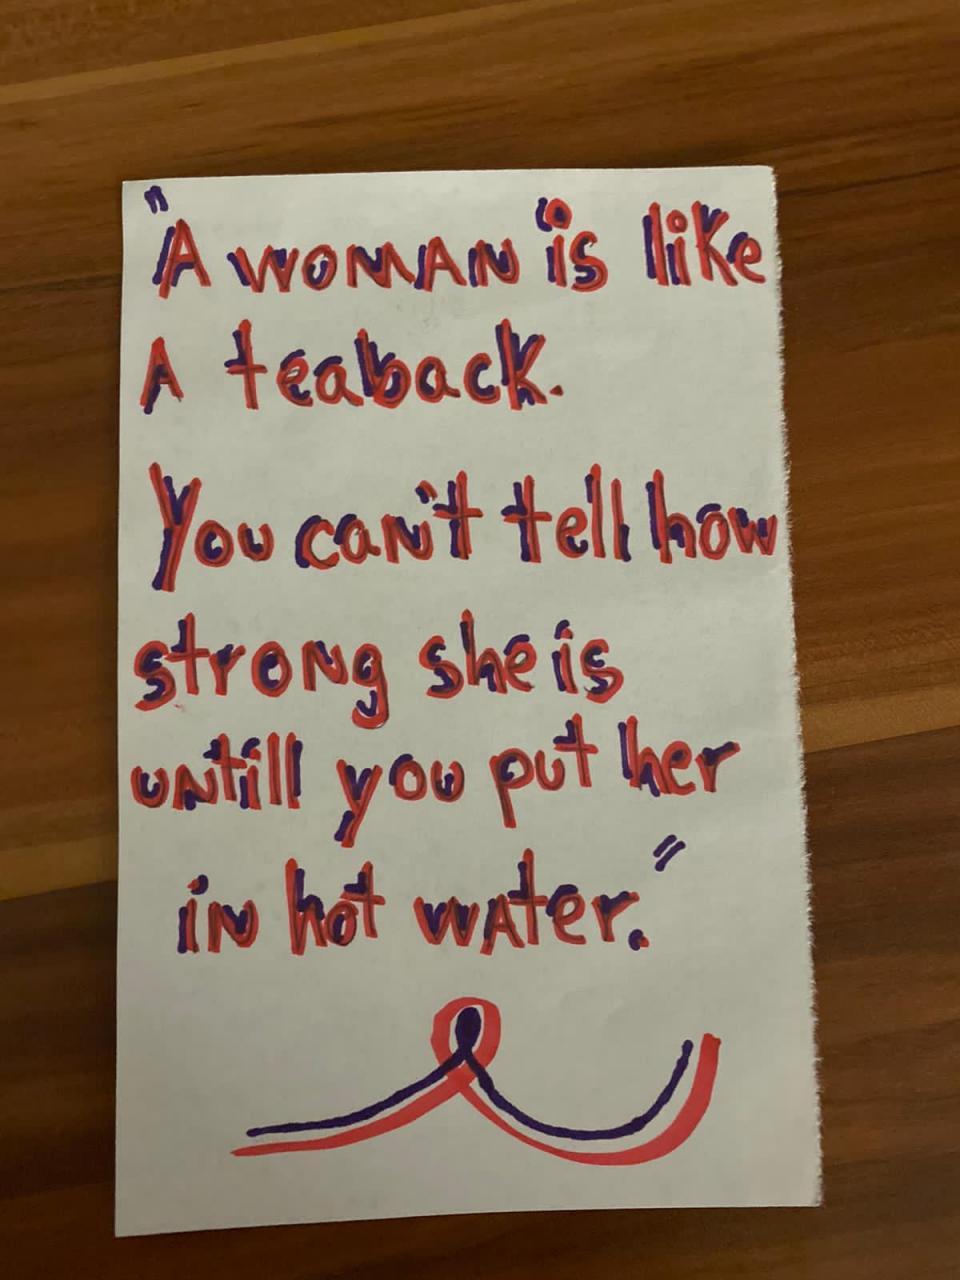 "A woman is like
A teaback.
You can't tell how
strong she is
untill you put her
in hot water."